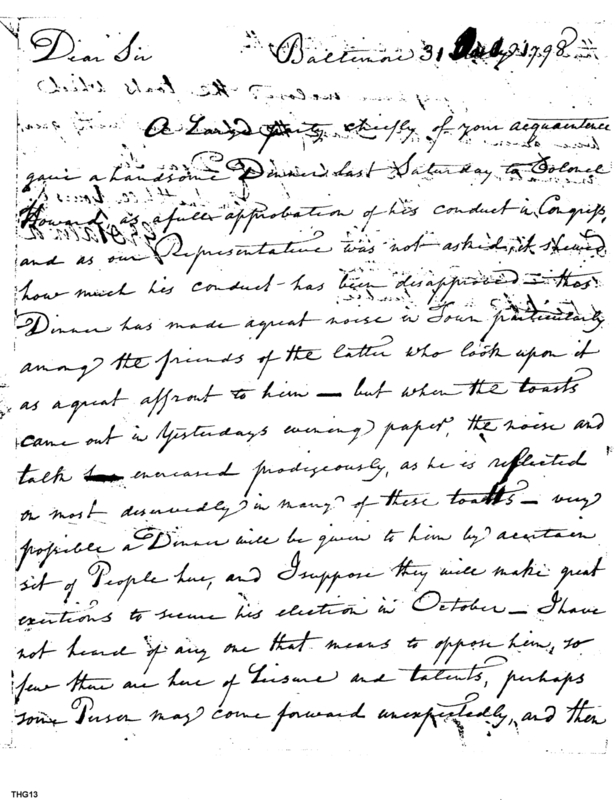 Dear Sir Baltimore 31 July 1798
A Large party chiefly of your acquaintence
gave a handsome Dinner last Saturday to Colonel
Howard as a full approbation of his conduct in Congress,
and as our Representative was not asked, it shewed
how much his conduct has been disapproved — this
Dinner has made a great noise in Town particularly
among the friends of the latter who look upon it
as a great affront to him — but when the toasts
came out in Yesterdays evening paper, the noise and
talk encreased prodigeously, as he is reflected
on most deservedly in many of these toasts — very
possible a Dinner will be given to him by a certain
set of People here, and I suppose they will make great
exertions to secure his election in October — I have
not heard of any one that means to oppose him, so
few there are here of Leisure and talents, perhaps
some Person may come forward unexpectedly, and then
THG13